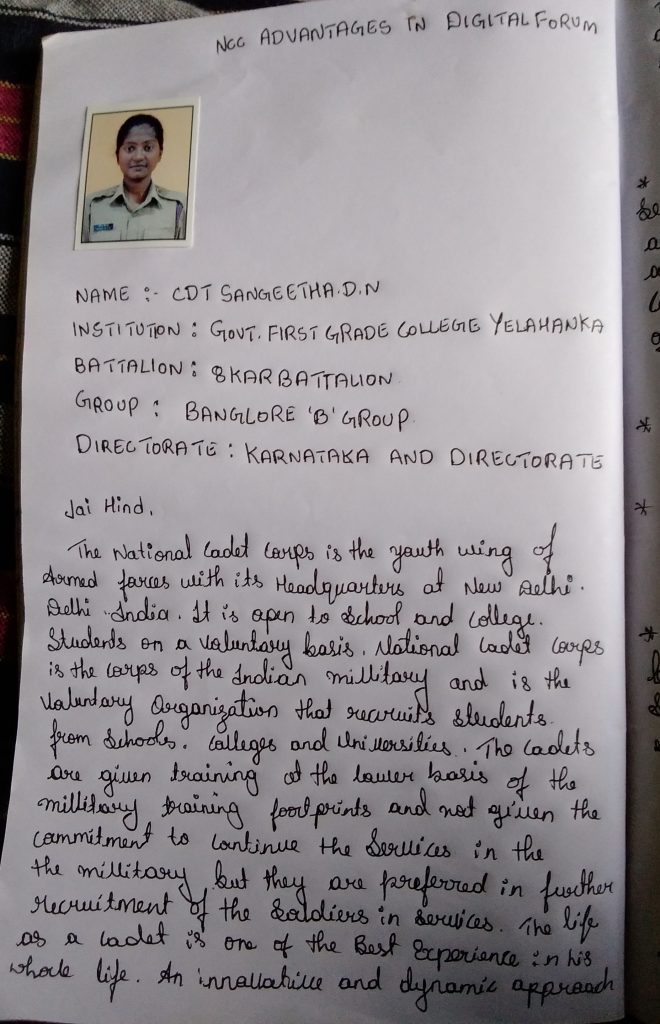 NCC ADVANTAGES IN DIGITAL FORUM
NAME :- CDT SANGEETHA.D.N
INSTITUTION : GOVT. FIRST GRADE COLLEGE YELAHANKA
BATTALION : 8KAR BATTALION
GROUP : BANGLORE 'B' GROUP.
DIRECTORATE : KARNATAKA AND DIRECTORATE
Jai Hind,
The National Cadet Corps is the youth wing of
Armed forces with its Headquarters at New Delhi.
Delhi. India. It is open to School and College.
Students on a Voluntary basis. National Cadet Corps
is the corps of the Indian millitary and is the
Voluntary Organization that recruits students
from Schools. Colleges and Universities. The Cadets
are given training at the lower basis of the
millitary training footprints and not given the
commitment to continue the Services in the
the millitary but they are preferred in further
recruitment of the Soldiers in services. The life
as a cadet is one of the Best Experience in his
whole life. An innovative and dynamic approach